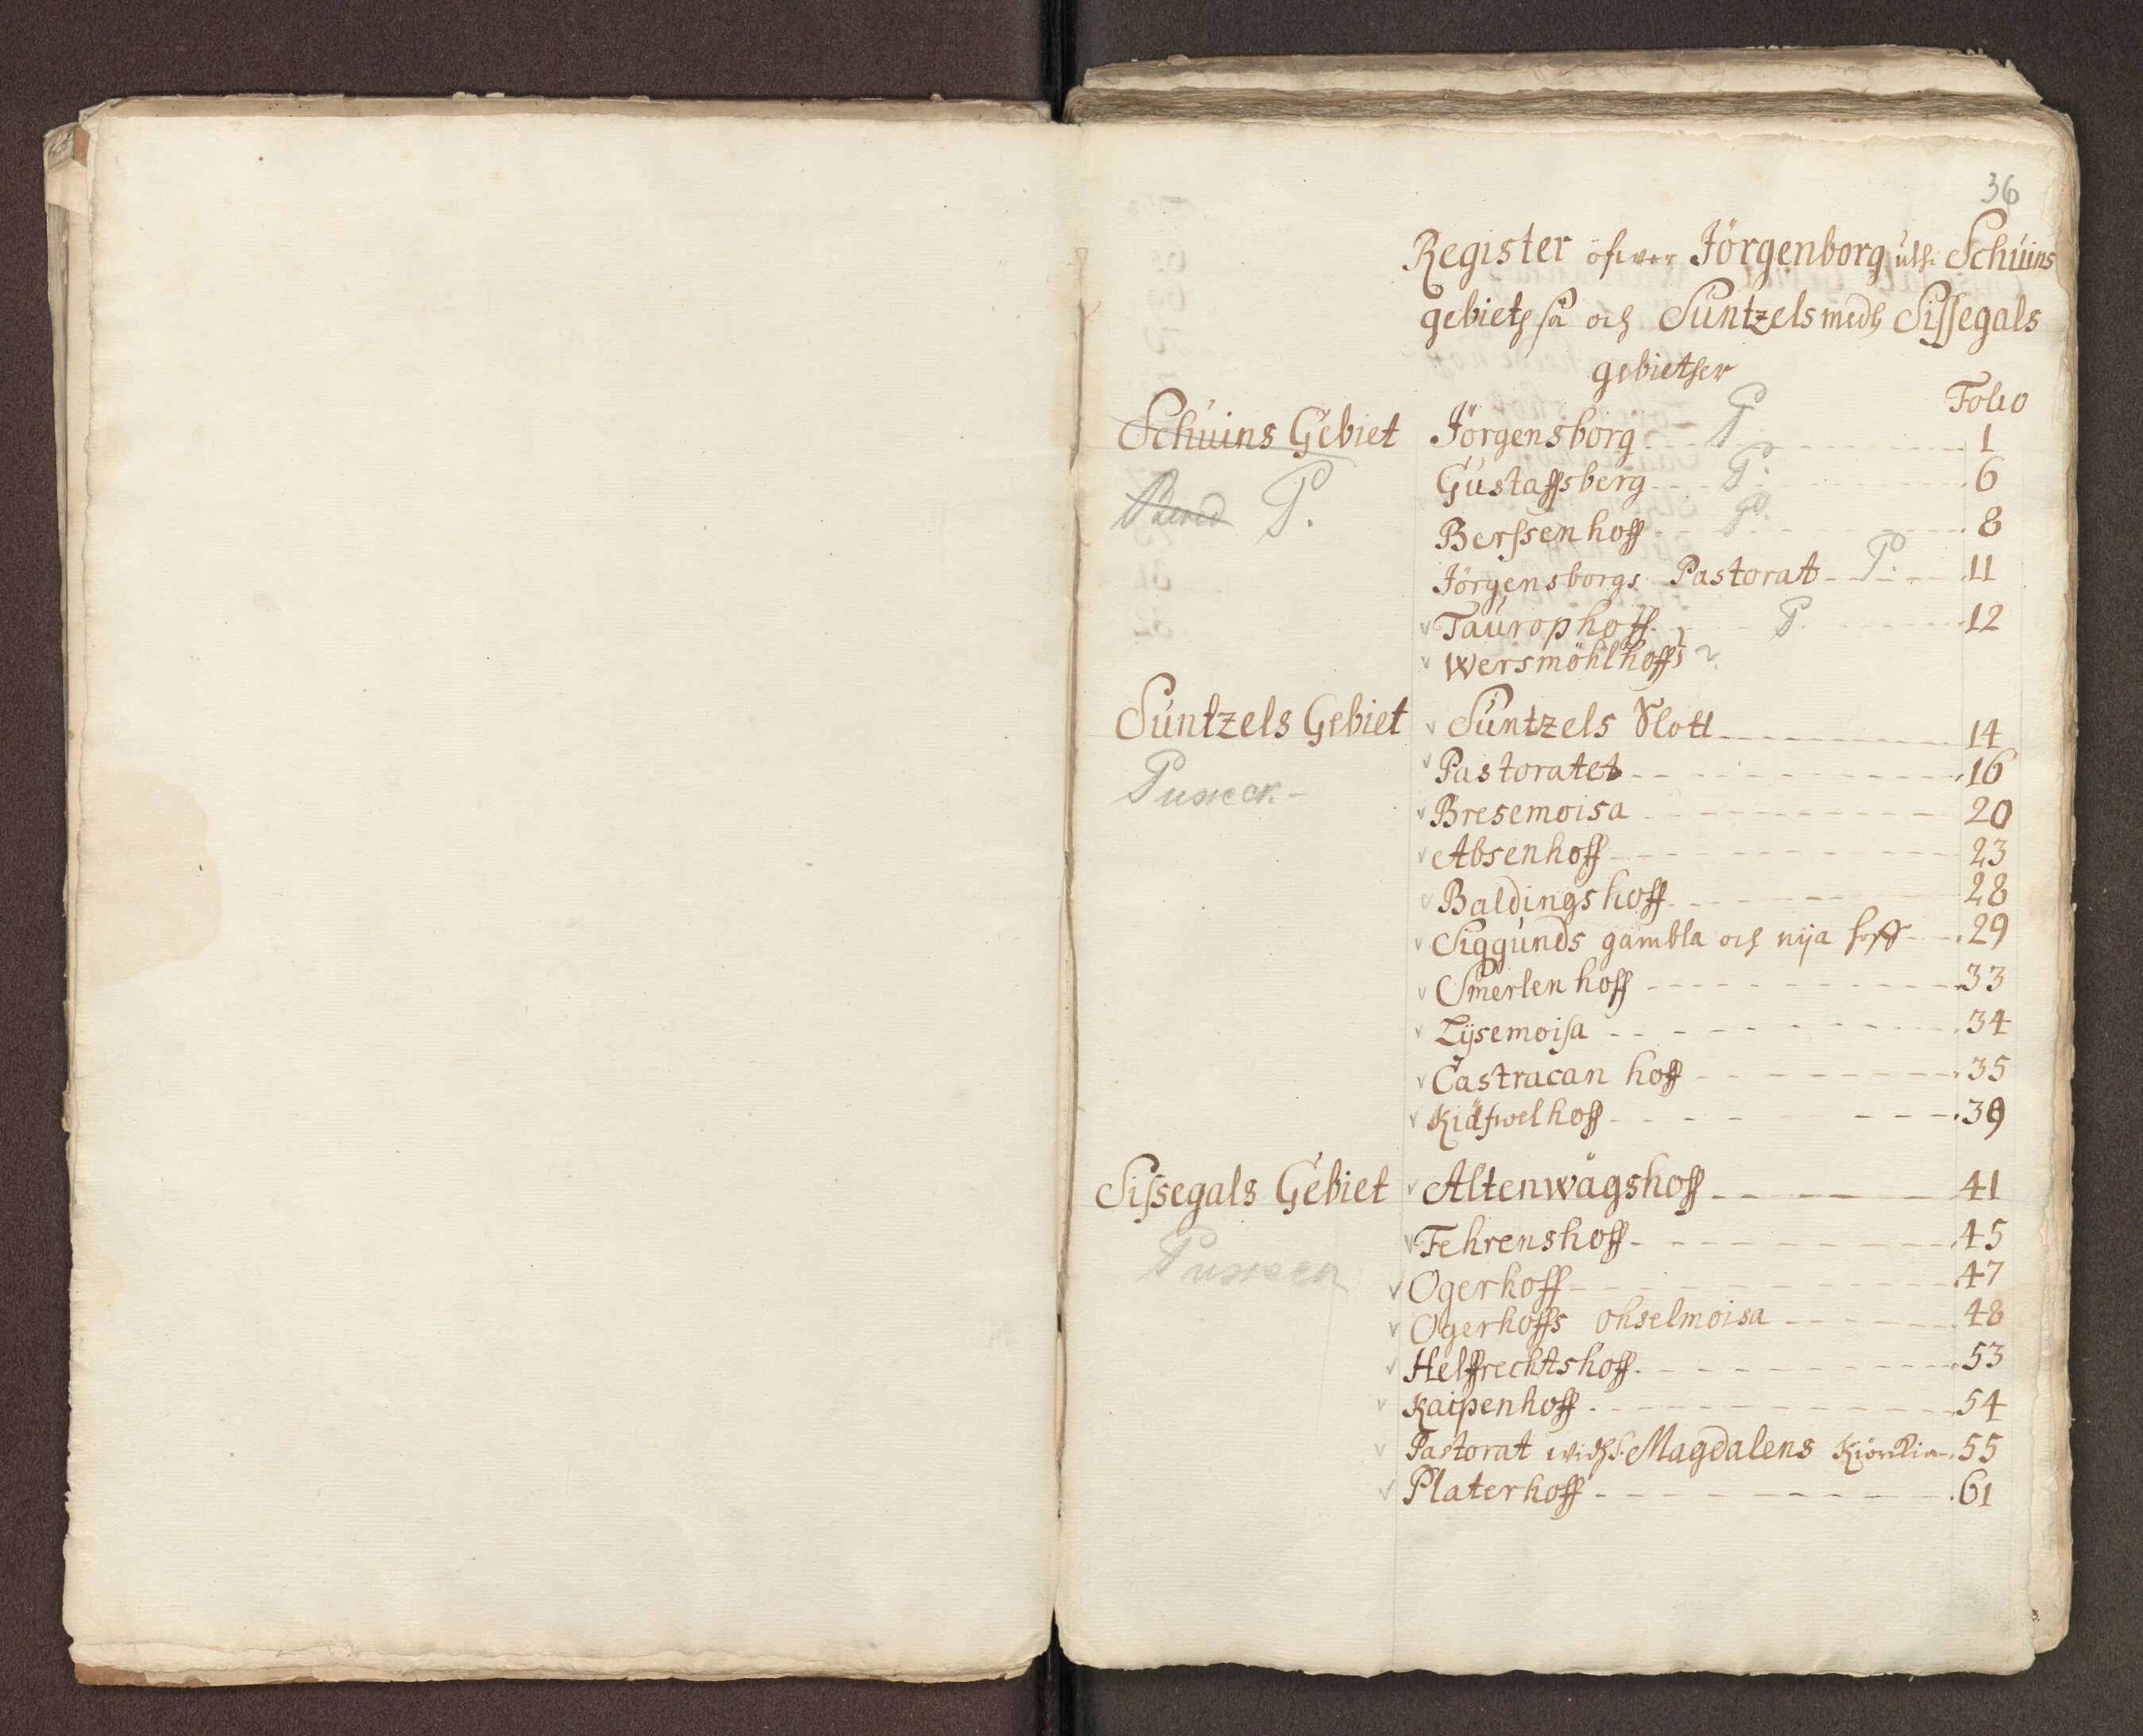 36
Register öfwer Jörgenborg uthi Schuins
gebiet så och Suntzels medh Sissegals
gebiether
Folio
Schuins Gebiet Jörgensborg P 1
Gustaffsberg P. 6
P. Berssenhoff P. 8
Jörgensborgs Pastorat P. 11
Taurophoff P. 12
Wersmöhlhoff
Suntzels Gebiet Suntzels Slott 14
Pastoratet 16
Bresemoisa 20
Absenhoff 23
Baldingshoff 28
Siggunds gambla och nya hoff 29
Smerlenhoff 33
Lysemoisa 34
Castracan hoff 35
Kidfwelhoff 39
Sissegals Gebiet Altenwågshoff 41
Fehrenshoff 45
Ogerhoff 47
Ogerhoffs Ohselmoisa 48
Helffrechtshoff 53
Kaipenhoff 54
Pastorat widh S. Magdalens Kiörkia 55
Platerhoff 61